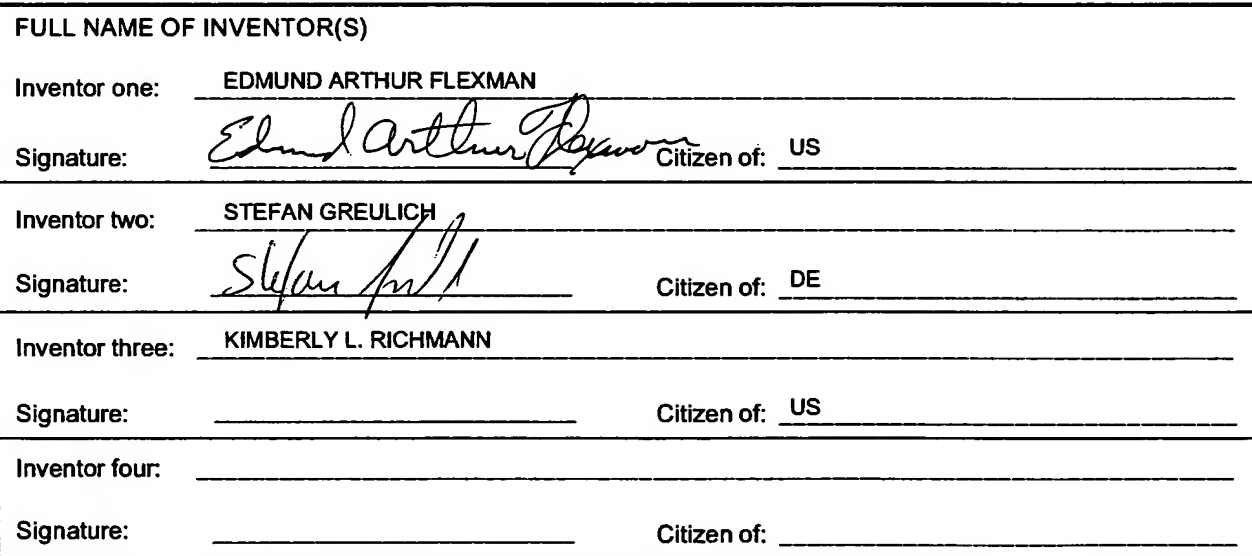 FULL NAME OF INVENTOR(S)
Inventor one: EDMUND ARTHUR FLEXMAN
Signature: Edmund Arthur Flexman Citizen of: US
Inventor two: STEFAN GREULICH
Signature: Stefan Citizen of: DE
Inventor three: KIMBERLY L. RICHMANN
Signature: Citizen of: US
Inventor four:
Signature: Citizen of: